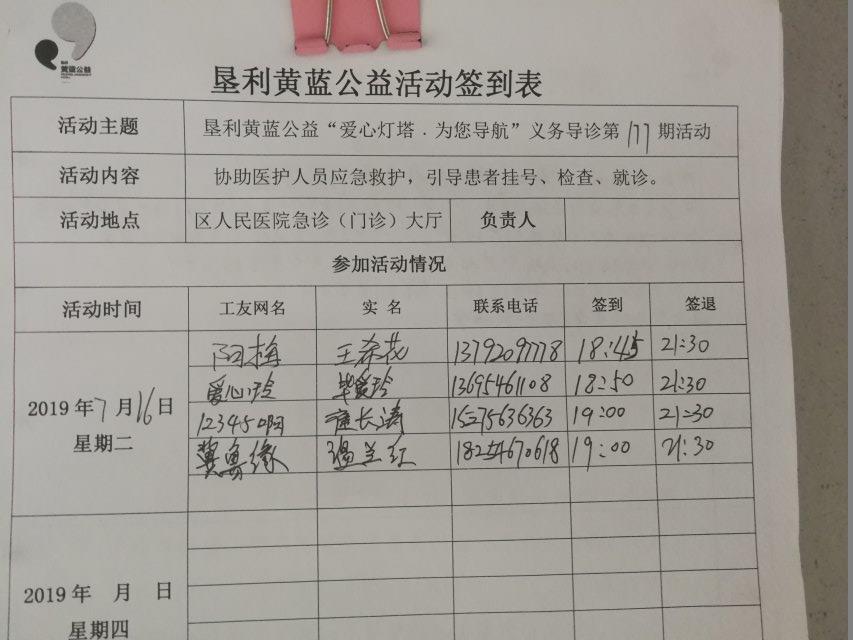 黄蓝公益
垦利黄蓝公益活动签到表
活动主题 垦利黄蓝公益“爱心灯塔．为您导航”义务导诊第177期活动
活动内容 协助医护人员应急救护，引导患者挂号、检查、就诊。
活动地点 区人民医院急诊（门诊）大厅 负责人
参加活动情况
活动时间 工友网名 实 名 联系电话 签到 签退
王希花 13792097778 18:45 21:30
爱心玲 毕爱玲 13695461108 18:50 21:30
2019年7月16日
星期二
12345啊 崔长涛 15275636363 19:00 21:30
冀鲁缘 温兰红 18254670618 19:00 21:30
2019年 月 日
星期四